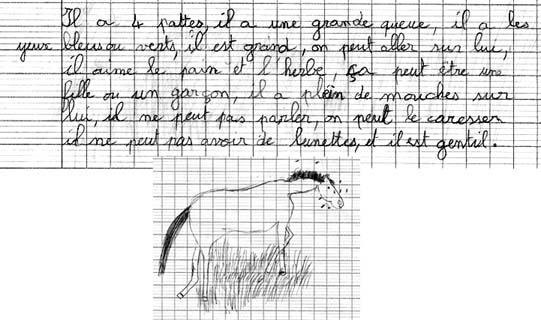 Il a 4 pattes, il a une grande queue, il a les
yeux bleus ou verts, il est grand, on peut aller sur lui,
il aime le pain et l'herbe, ça peut être une
fille ou un garçon, il a plein de mouches sur
lui, il ne peut pas parler, on peut le caresser
il ne peut pas avoir de lunettes, et il est gentil.